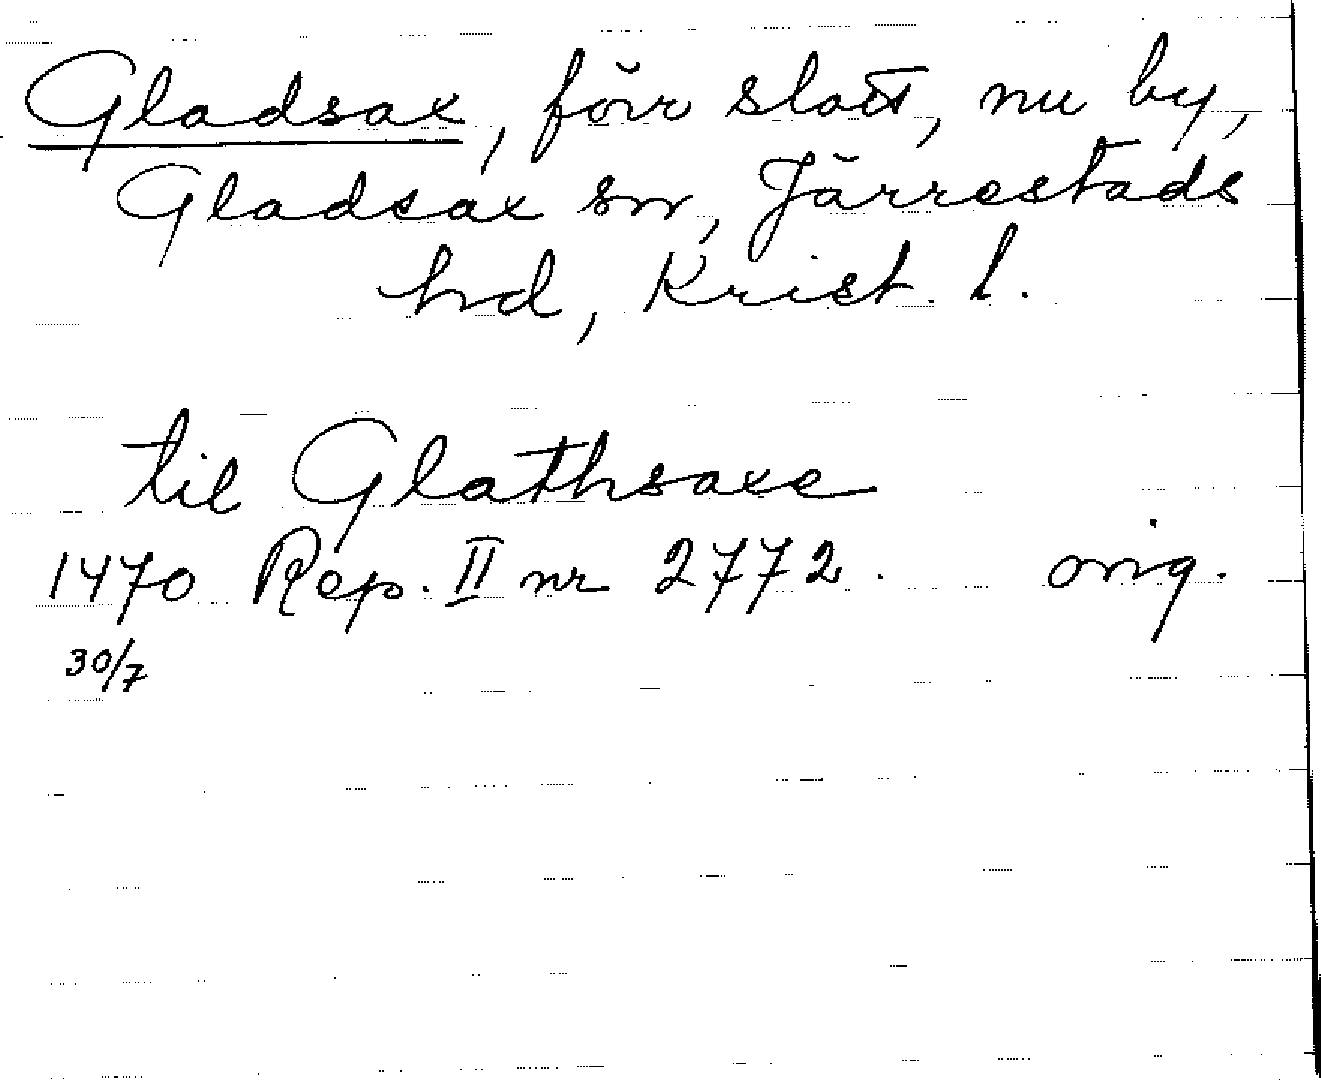 Gladsax, förr slott, nu by,
Gladsax sn, Järrestads
hd, Krist. l.
til Glathsaxe
1470 Rep. II nr 2772. orig.
30/7